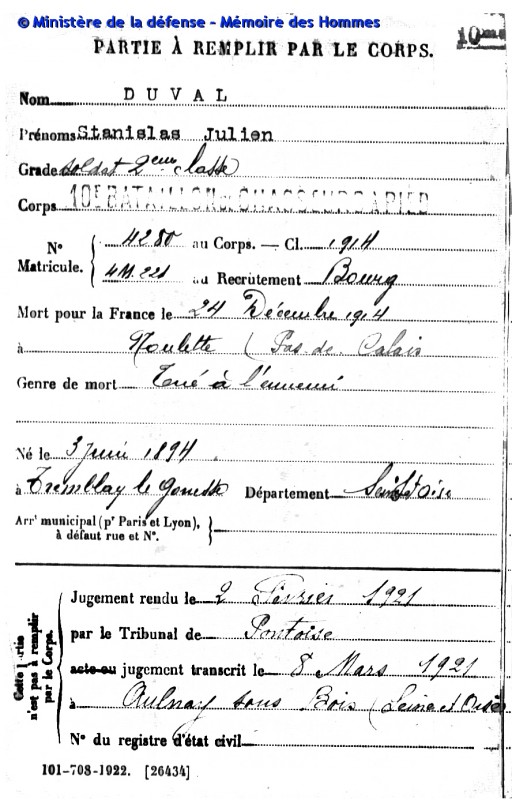 © Ministère de la défense - Mémoire des Hommes
PARTIE À REMPLIR PAR LE CORPS.
10me
Nom DUVAL
Prénoms Stanislas Julien
Grade soldat 2eme classe
Corps 10e BATAILLON DE CHASSEURS A PIED
N° Matricule. { 4280 au Corps. — Cl. 1914
4M.221 au Recrutement Bourg
Mort pour la France le 24 Décembre 1914
à Noulette (Pas de Calais
Genre de mort Tué à l'ennemi
Né le 3 juin 1894
à Tremblay le Gonesse Département Seine et Oise
Arrt municipal (pr Paris et Lyon),
à défaut rue et N°. }
Cette partie n'est pas à remplir par le Corps. {
Jugement rendu le 2 Février 1921
par le Tribunal de Pontoise
acte ou jugement transcrit le 8 Mars 1921
à Aulnay sous Bois (Seine et Oise
N° du registre d'état civil
101-708-1922. [26434]